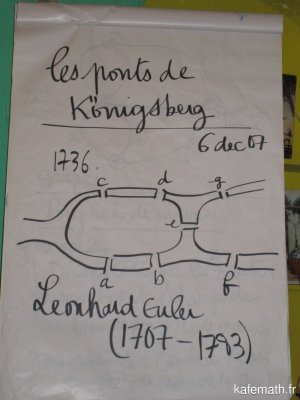 les ponts de
Königsberg
6 dec 07
1736.
c d g
e
a b f
Leonhard Euler
(1707 - 1783)
kafemath.fr